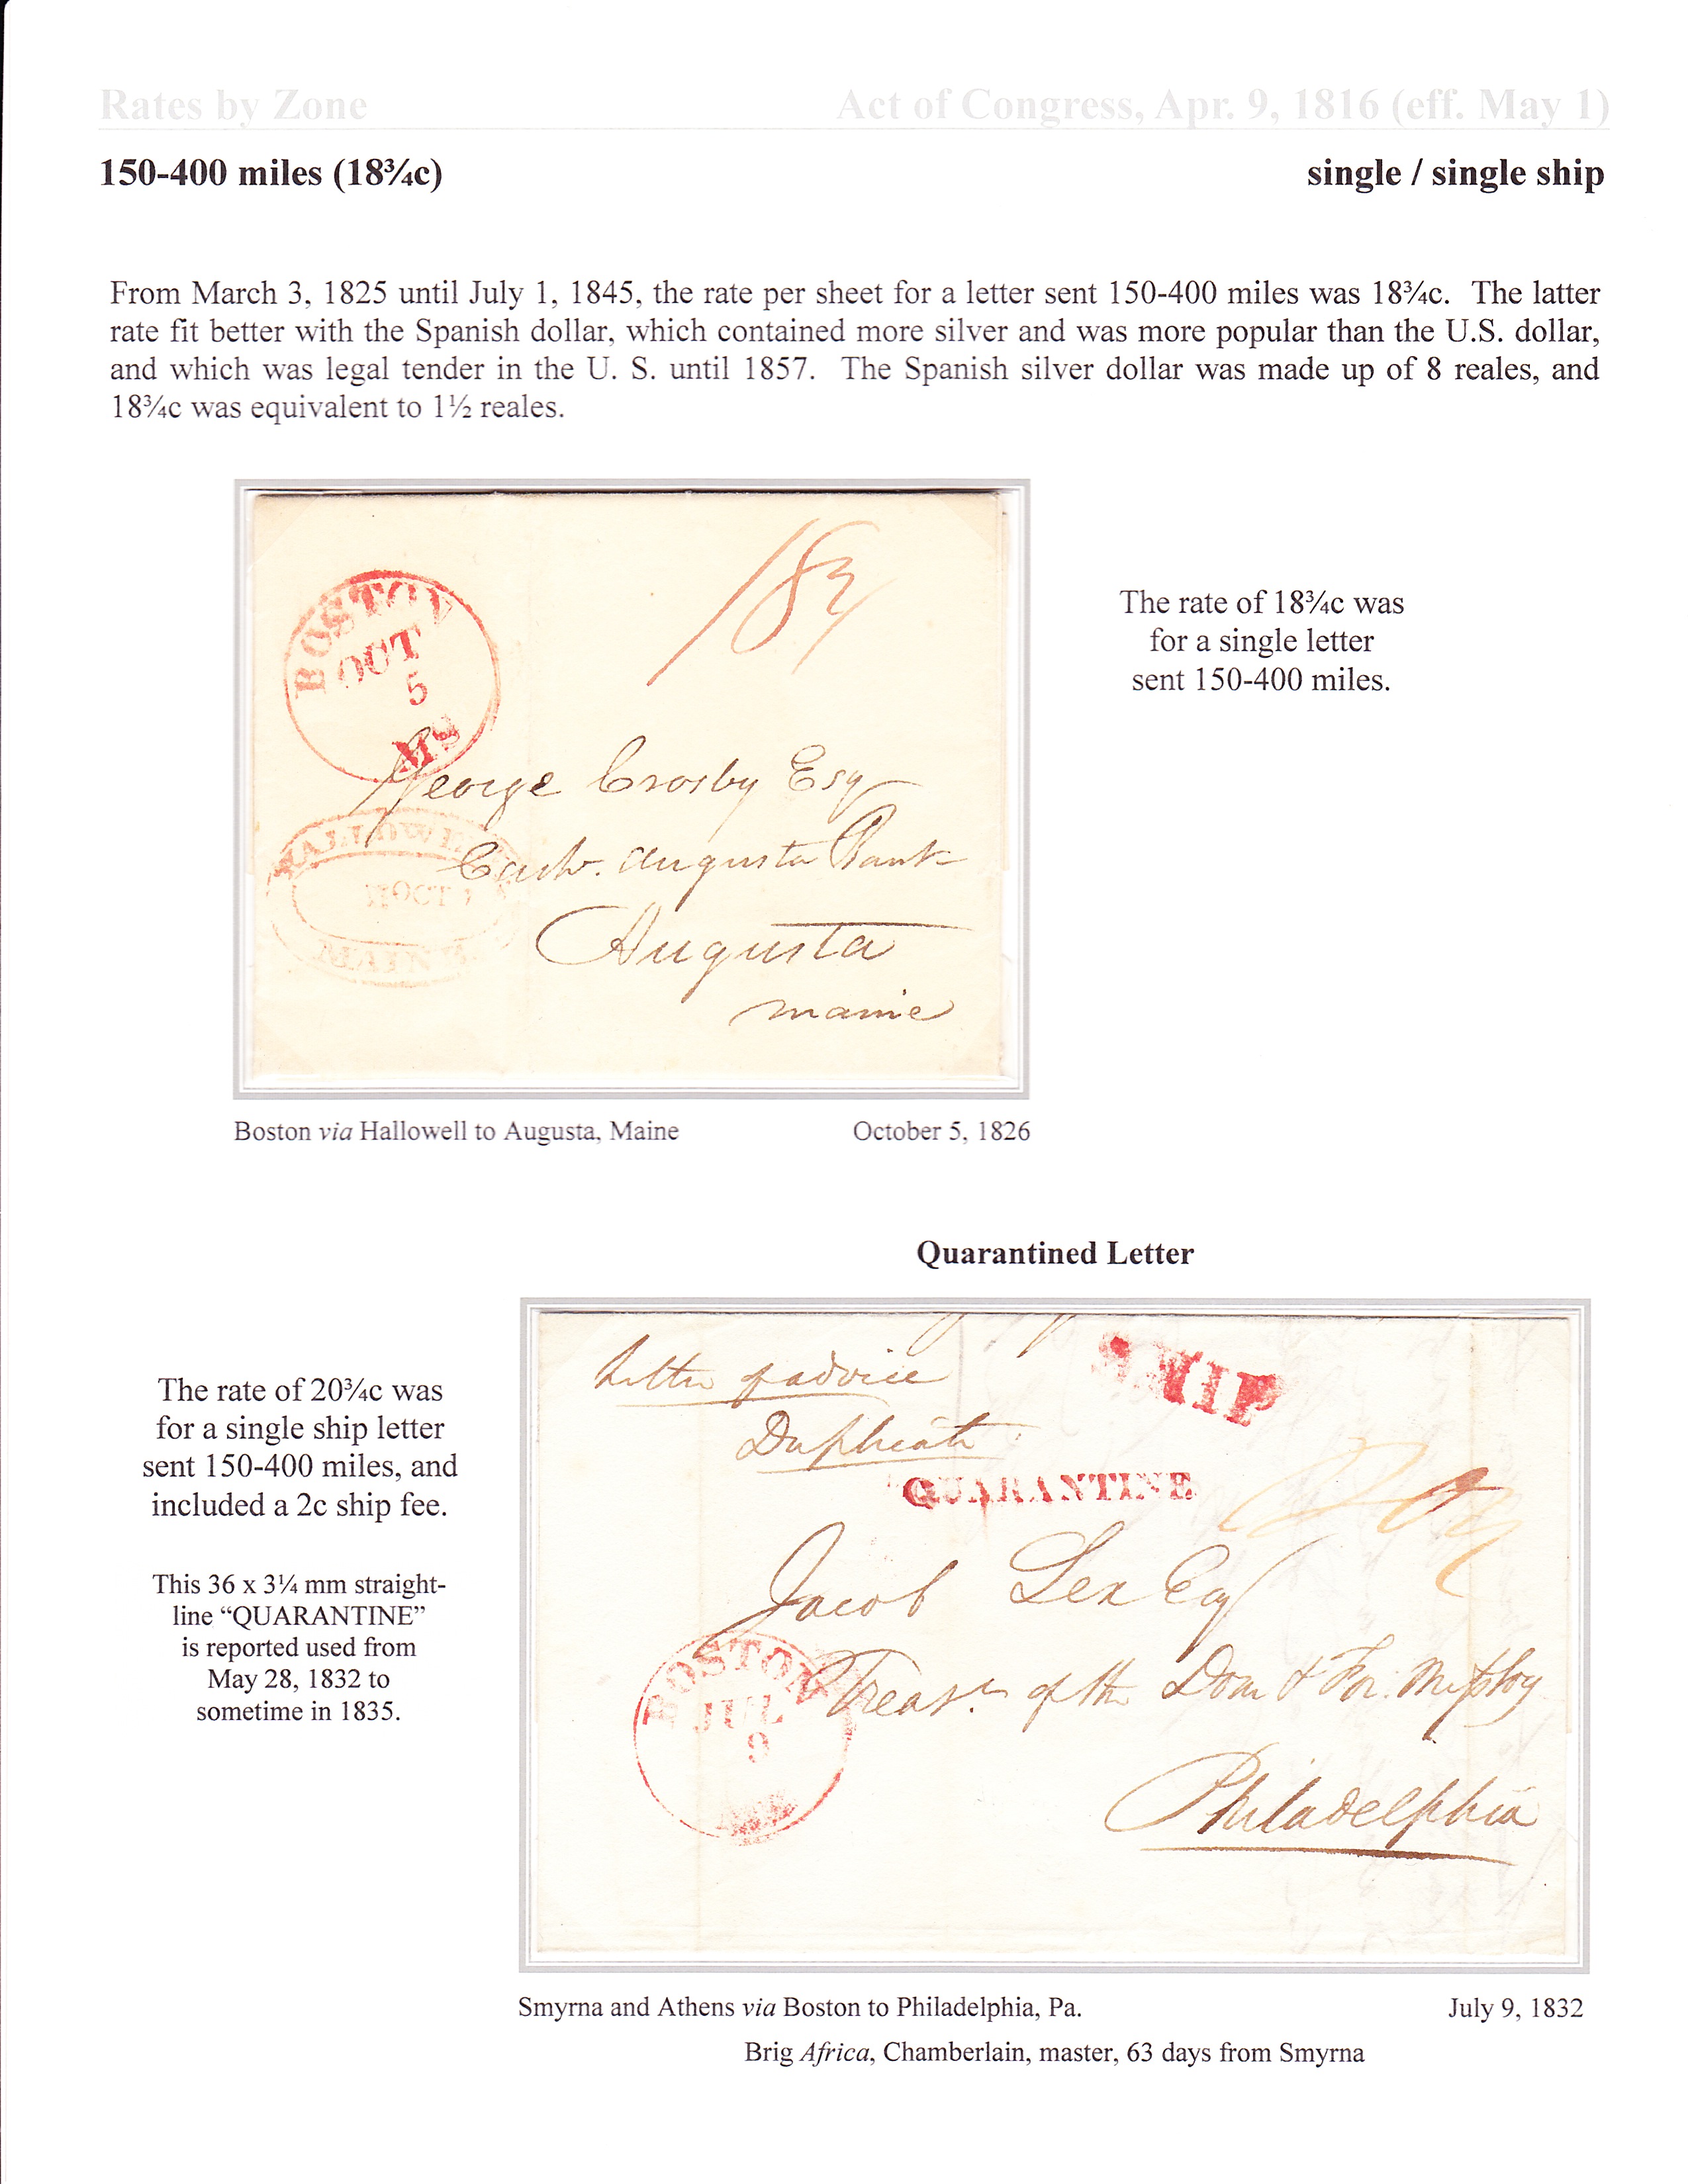 Rates by Zone Act of Congress, Apr. 9, 1816 (eff. May 1)
150-400 miles (18¾c) single / single ship
From March 3, 1825 until July 1, 1845, the rate per sheet for a letter sent 150-400 miles was 18¾c. The latter
rate fit better with the Spanish dollar, which contained more silver and was more popular than the U.S. dollar,
and which was legal tender in the U. S. until 1857. The Spanish silver dollar was made up of 8 reales, and
18¾c was equivalent to 1½ reales.
18¾
BOSTON
OCT
5
MS
George Crosby Esq
Cash. Augusta Bank
Augusta
maine
HALLOWELL
OCT
MAINE
The rate of 18¾c was
for a single letter
sent 150-400 miles.
Boston via Hallowell to Augusta, Maine October 5, 1826
Quarantined Letter
The rate of 20¾c was
for a single ship letter
sent 150-400 miles, and
included a 2c ship fee.
This 36 x 3¼ mm straight-
line “QUARANTINE”
is reported used from
May 28, 1832 to
sometime in 1835.
Letter of advice
SHIP
Duplicate
QUARANTINE
20¾
Jacob Lex Esq
Treasr of the Dom & For. Miss Soy
Philadelphia
BOSTON
JUL
9
Smyrna and Athens via Boston to Philadelphia, Pa. July 9, 1832
Brig Africa, Chamberlain, master, 63 days from Smyrna